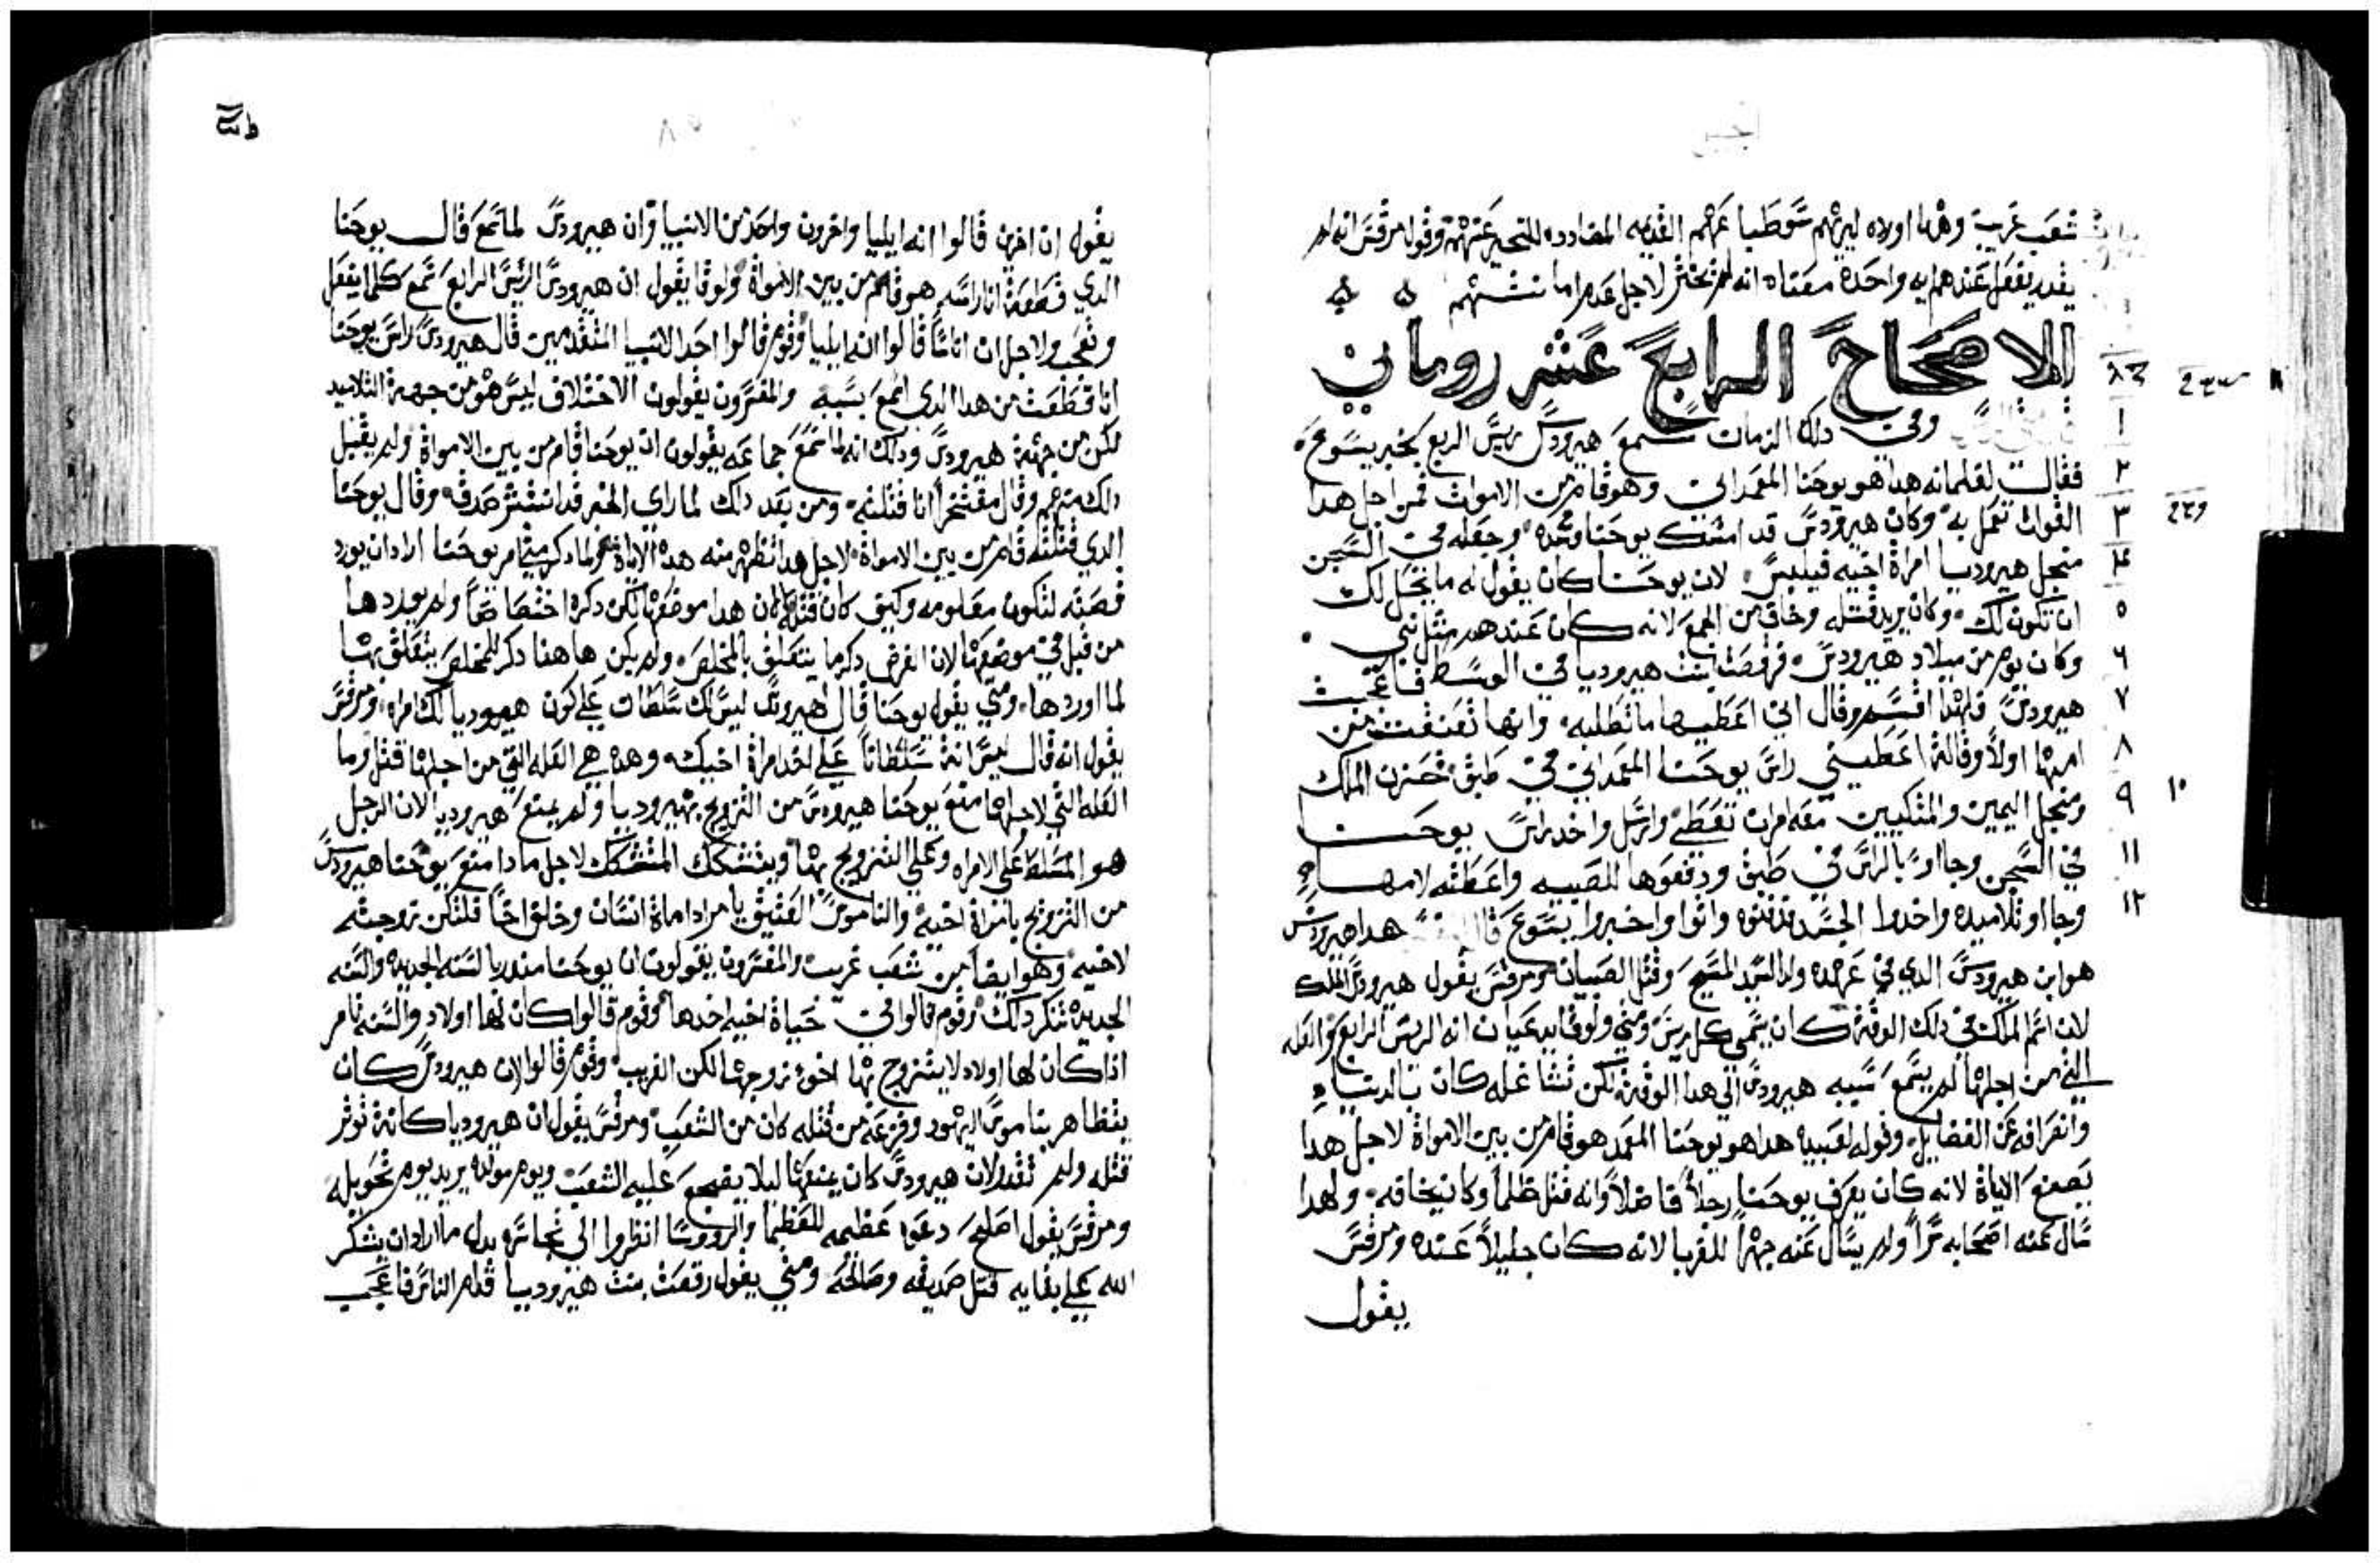 شعب غريب وهرما اولاه ليريهم سوطيا عهم القديمه المضادده للتحير عنهمة وقول مرقس انه لم
يقدر يفعل عندهم ايه واحده معناه انه لم تختر لاجل عدم اما نتهم
الاصحاح الرابع عشر رومان
وفي دلك الزمان سمع هيرودس ريس الربع بخبر يسوع
فقال لغلمانه هدا هو يوحنا المعمداني وهو قام من الاموات فمن اجل هدا
القواة تعمل به وكان هيرودس قد امسك يوحنا وشده وجعله في السجن
منجل هيروديا امراة اخيه فيلبس لان يوحنا كان يقول له ما تحل لك
ان تكون لك وكان يريد قتله وخاف من الجمع لانه كان عندهم مثل نبي
وكان يوم من ميلاد هيرودس فرقصت بنت هيروديا في الوسط فاعجبت
هيرودس فلهدا اقسم وقال اني اعطيها ما تطلبه وانها تعنفت من
امها اولا وقالة اعطيني راس يوحنا المعمداني في طبق فحزن الملك
ومنجل اليمين والمتكيين معه امران تعطي وارسل واخد راس يوحنا
في السجن وجااو بالراس في طبق ودفعوها للصبيه واعطته لامها
وجااو تلاميده واخدوا الجسد ودفنوه واتوا واخبروا يسوع هدا هيرودس
هو ابن هيرودس الدي في عهده ولد السيد المسيح وقتل الصبيان ومرقس يقول هيرودس الملك
لان اسم الملك في دلك الوقة كان يسمي كل ريس ومتي ولوقا يدعيان انه الريس الرابع والعله
التي من اجلها لم يسمع سببه هيرودس الي هدا الوقة لكن تشاغله كان بالدنيا
وانعرافه عن الفضايل وقوله لعبيده هدا هو يوحنا المعمد هو قام من بين الامواة لاجل هدا
يصنع الاياة لانه كان يعرف يوحنا رجلا فاضلا وانه قتل ظلما وكان يخافه ولهدا
سال عنه اصحابه سرا ولم يسال عنه جهرا للغربا لانه كان جليلا عنده ومرقس
يقول
يقول ان اخرين قالوا انه ايليا واخرون واحد من الانبيا وان هيرودس لما سمع قال يوحنا
الدي قطعة انا راسه هو قام من بين الامواة ولوقا يقول ان هيرودس الريس الرابع سمع كلما يفعل
وتعجب ولاجل ان اناسا قالوا انه ايليا وقوم قالوا احد الانبيا المتقدمين قال هيرودس راس يوحنا
انا قطعت من هدا الدي اسمع بسببه والمفسرون يقولون الاختلاف ليس هو من جهة التلاميد
لكن من جهة هيرودس ودلك انه لما سمع جماعه يقولون ان يوحنا قام من بين الامواة ولم يقبل
دلك منهم وقال مفتخرا انا قتلته ومن بعد دلك لما راي الخبر قد انتشر صدقه وقال يوحنا
الدي قتلته قام من بين الامواة لاجل هدا تظهر منه هده الاياة لما دكر متي امر يوحنا اراد ان يورد
قصته لتكون معلومه وكيف كان قتله لان هدا موضعها لكن دكره اختصاصا ولم يوردها
من قبل في موضعها لان الغرض دكر ما يتعلق بالمخلص ولم يكن هاهنا دكر للمخلص يتعلق بها
لما اوردها ومتي يقول يوحنا قال لهيرودس ليس لك سلطان علي كون هيروديا لك امراه ومرقس
يقول انه قال ليس انه سلطانا علي اخد امراة اخيك وهده هي العله التي من اجلها قتل وما
العله التي لاجلها منع يوحنا هيرودس من التزويج بهيروديا ولم يمنع هيروديا لان الرجل
هو المسلط علي الامراه وعلي التزويج بها ويتشكك المتشكك لاجل مادا منع يوحنا هيرودس
من التزويج بامراة اخيه والناموس العتيق يامر ادا ماة انسان وخلف اخا فلتكن زوجته
لاخيه وهو ايضا من شعب غريب والمفسرون يقولون ان يوحنا مندريا لسنه الجديده والسنه
الجديده تنكر دلك وقوم قالوا في حياة اخيه اخدها وقوم قالوا كان لها اولاد والسنه تامر
ادا كان لها اولاد لا يتزوج بها اخو زوجها لكن القريب وقوم قالوا لان هيرودس كان
يتظاهر بناموس اليهود وفزعه من قتله كان من الشعب ومرقس يقول ان هيروديا كانة توثر
قتله ولم تقدر لان هيرودس كان يمنعها ليلا يفجع عليه الشعب ويوم مولده يريد يوم تحويله
ومرقس يقول اصلح دعوه عظيمه للعظما والروسا انظروا الي تجاسره بدل ما اراد ان يشكر
الله علي بقايه قتل صديقه وصالحه ومتي يقول رقصت بنت هيروديا قدام الناس فاعجب